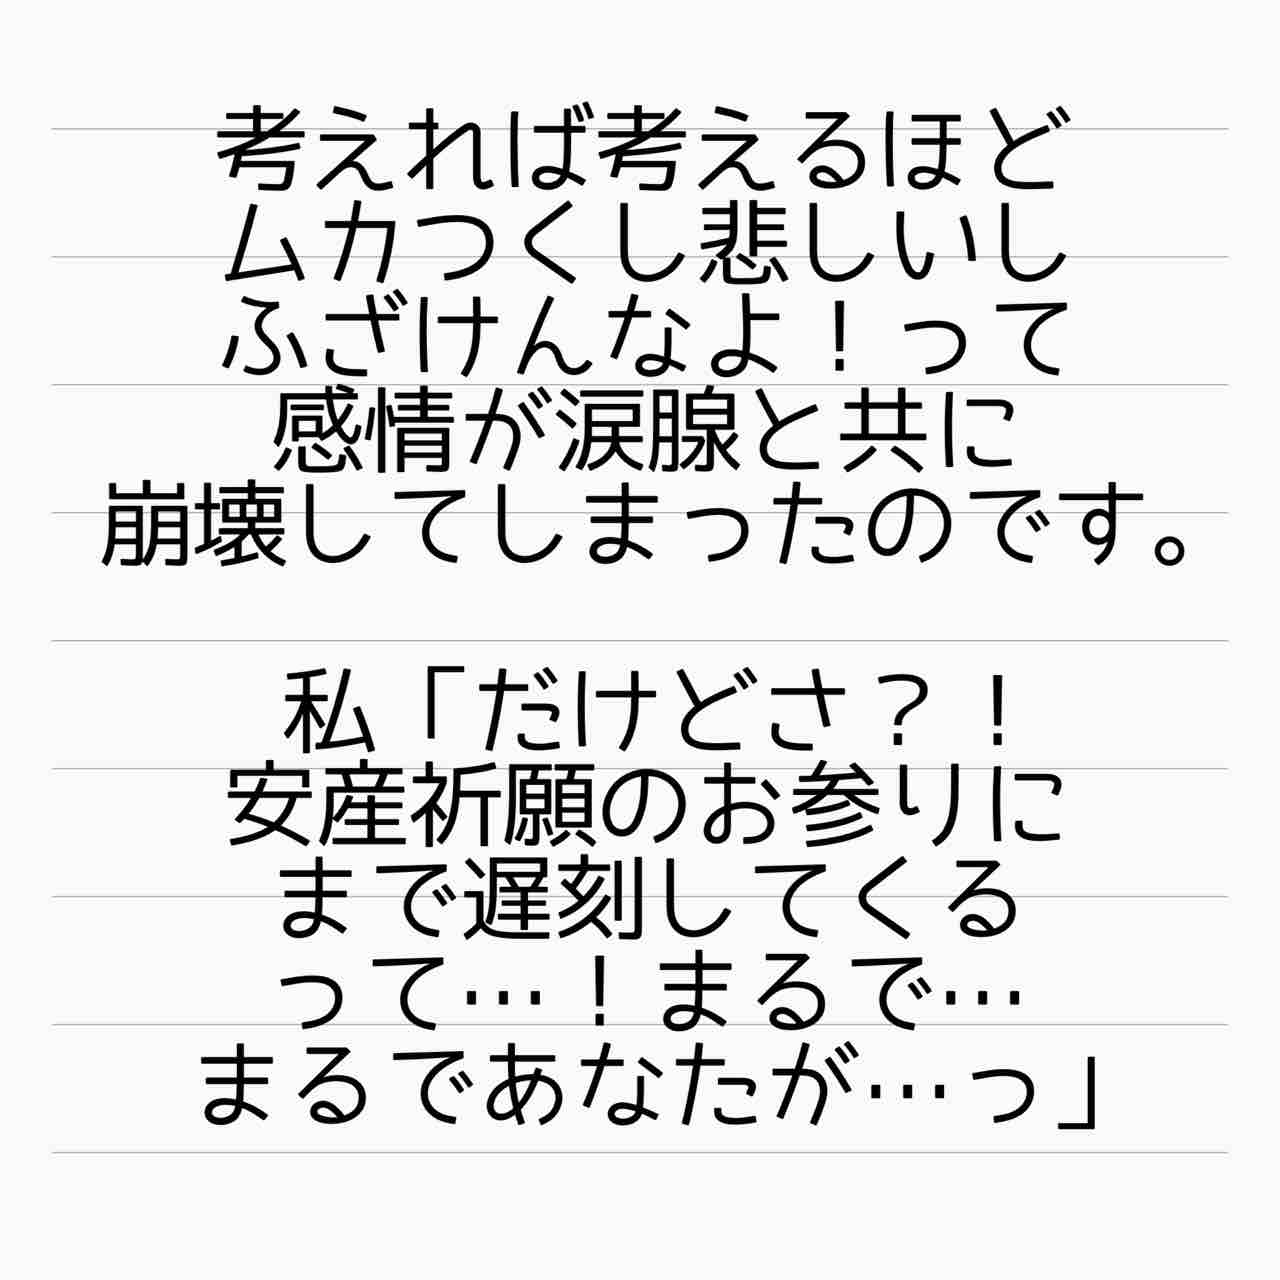 考えれば考えるほど
ムカつくし悲しいし
ふざけんなよ！って
感情が涙腺と共に
崩壊してしまったのです。
私「だけどさ？！
安産祈願のお参りに
まで遅刻してくる
って…！まるで…
まるであなたが…っ」